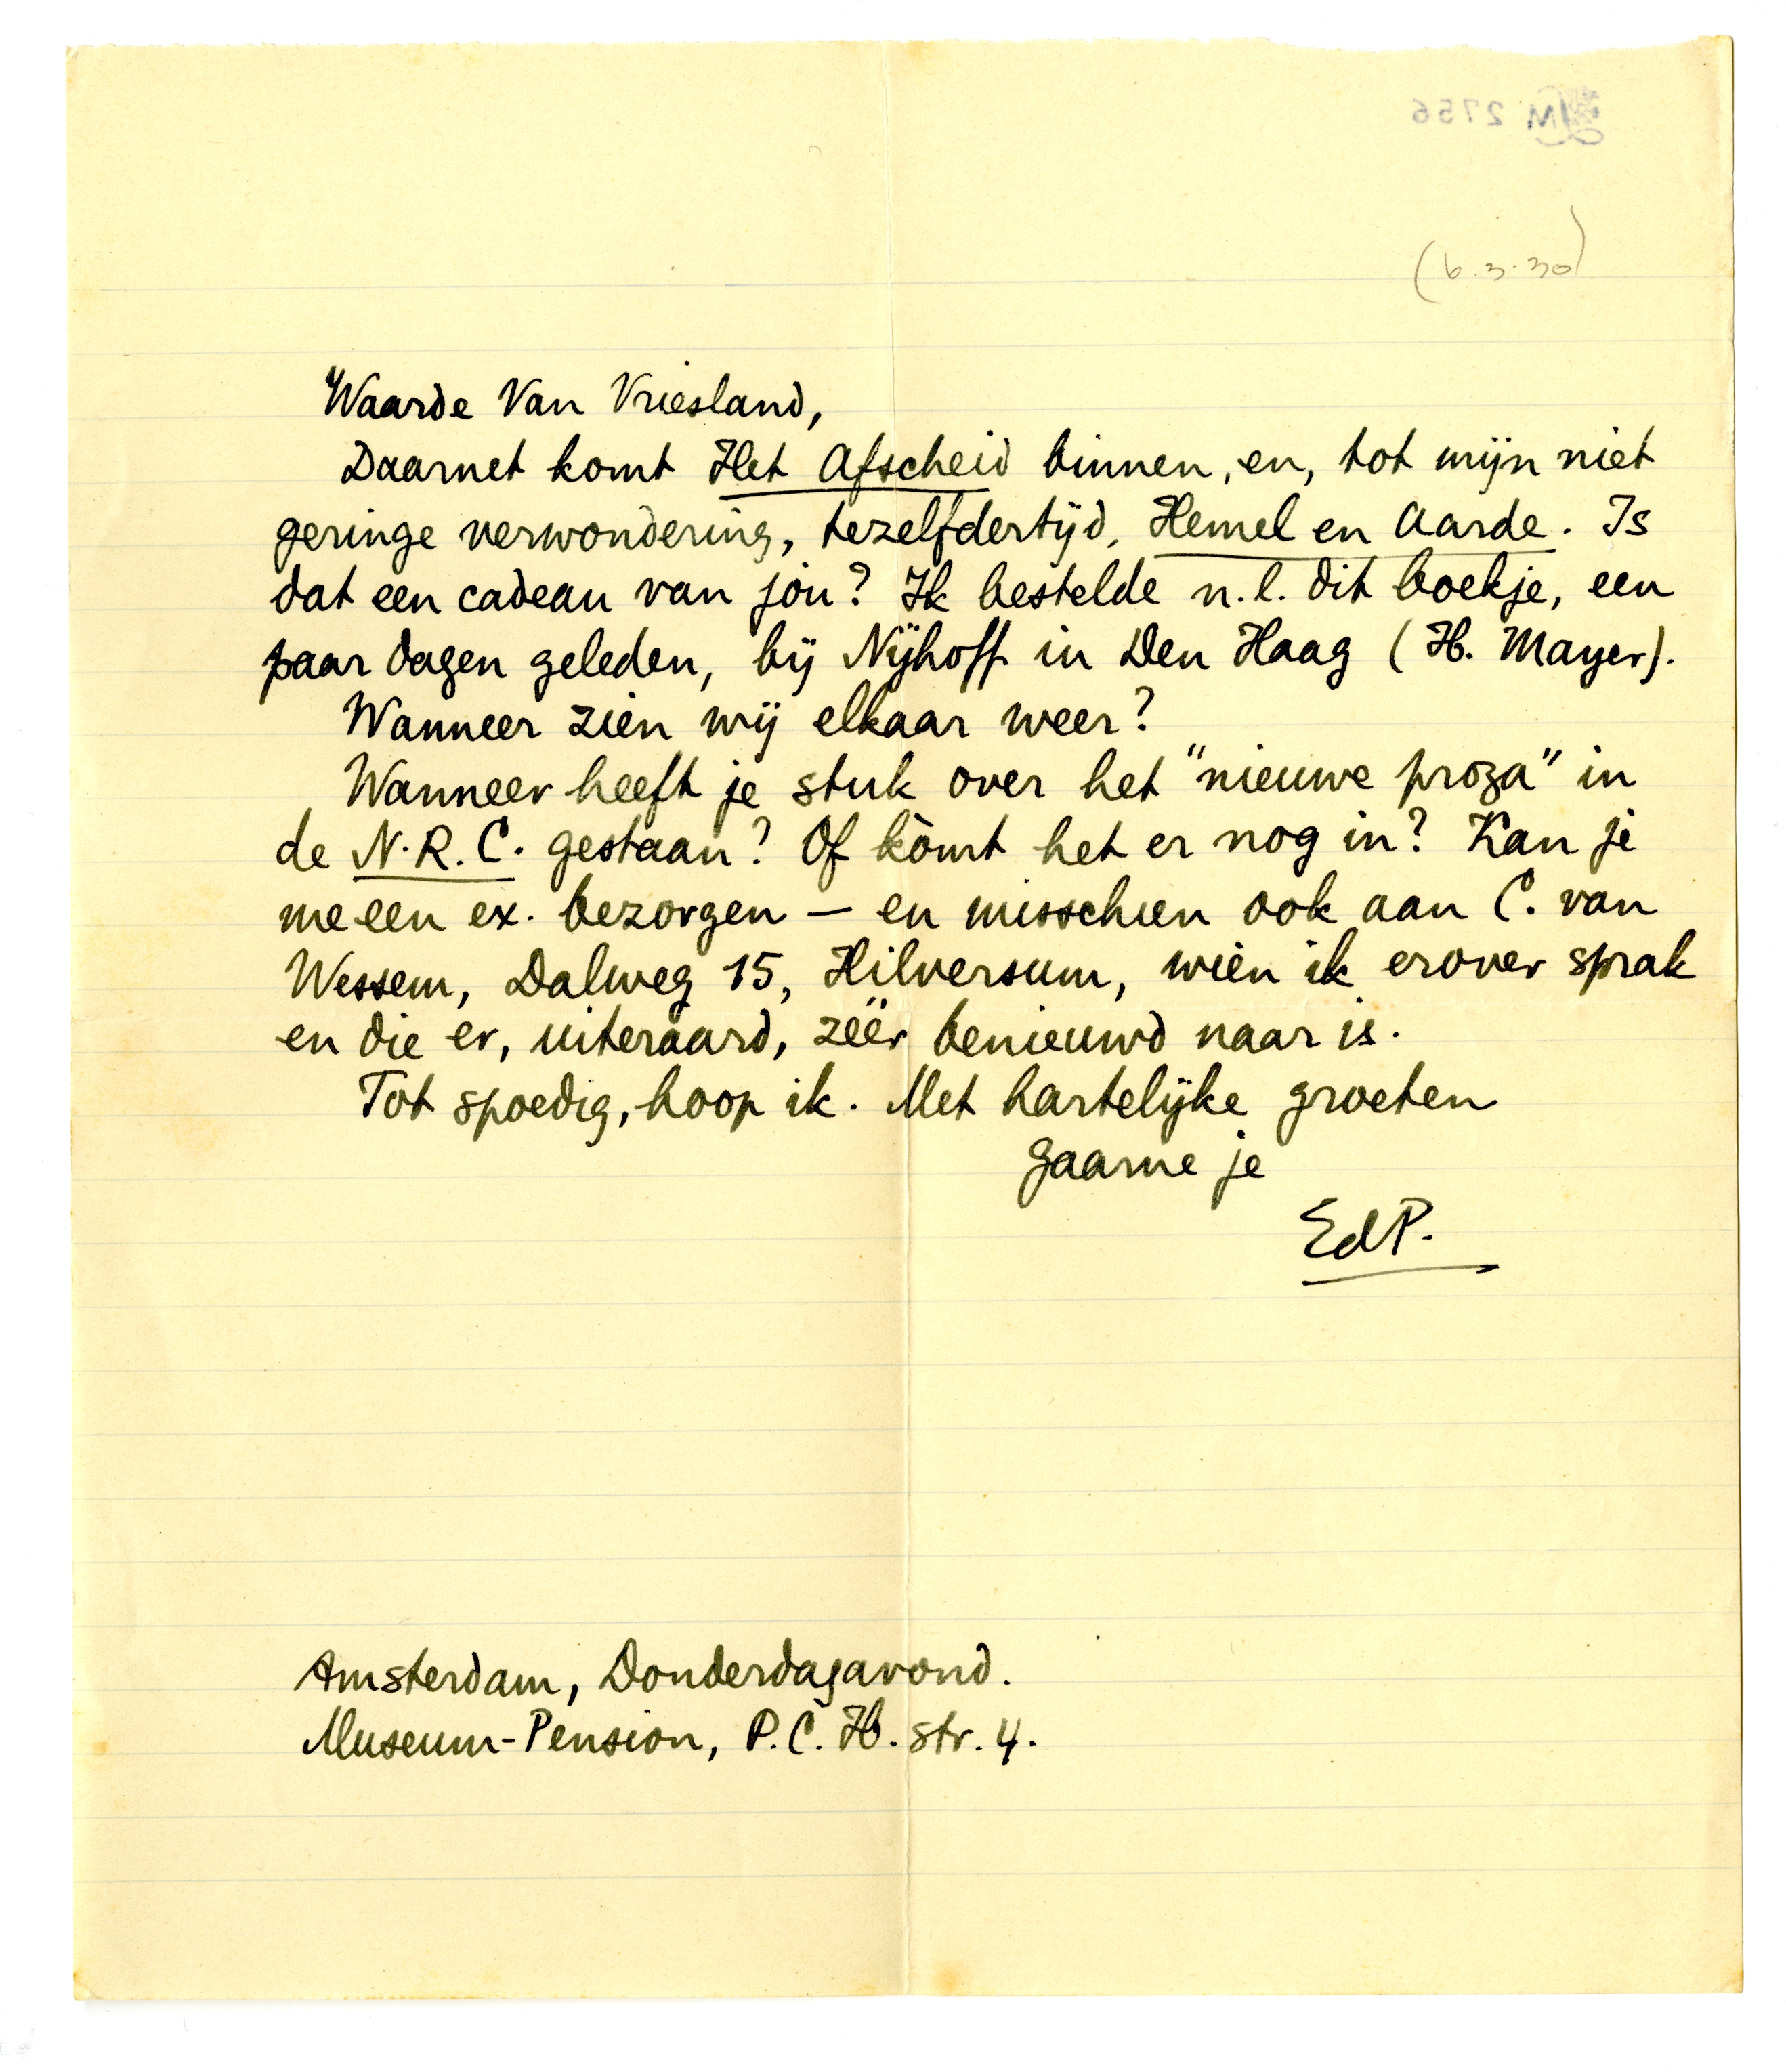 LM 2756
(6.3.30)
Waarde Van Vriesland,
Daarnet komt Het Afscheid binnen, en, tot mijn niet
geringe verwondering, tezelfdertijd, Hemel en Aarde. Is
dat een cadeau van jòu? Ik bestelde n.l. dit boekje, een
paar dagen geleden, bij Nijhoff in Den Haag (H. Mayer).
Wanneer zien wij elkaar weer?
Wanneer heeft je stuk over het "nieuwe proza" in
de N.R.C. gestaan? Of kòmt het er nog in? Kan je
me een ex. bezorgen — en misschien ook aan C. van
Wessem, Dalweg 15, Hilversum, wien ik erover sprak
en die er, uiteraard, zéér benieuwd naar is.
Tot spoedig, hoop ik. Met hartelijke groeten
gaarne je
EdP.
Amsterdam, Donderdagavond.
Museum-Pension, P.C.H. str. 4.